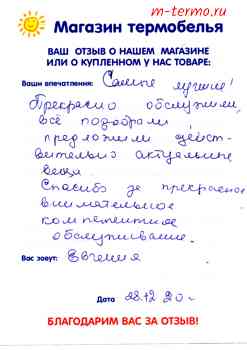 m-termo.ru
Магазин термобелья
ВАШ ОТЗЫВ О НАШЕМ МАГАЗИНЕ
ИЛИ О КУПЛЕННОМ У НАС ТОВАРЕ:
Ваши впечатления: Самые лучшие!
Прекрасно обслужили,
всё подобрали
предложили дейст-
вительно актуальные
вещи.
Спасибо за прекрасное
внимательное
компетентное
обслуживание.
Вас зовут: Евгения
Дата 28.12 20 г.
БЛАГОДАРИМ ВАС ЗА ОТЗЫВ!